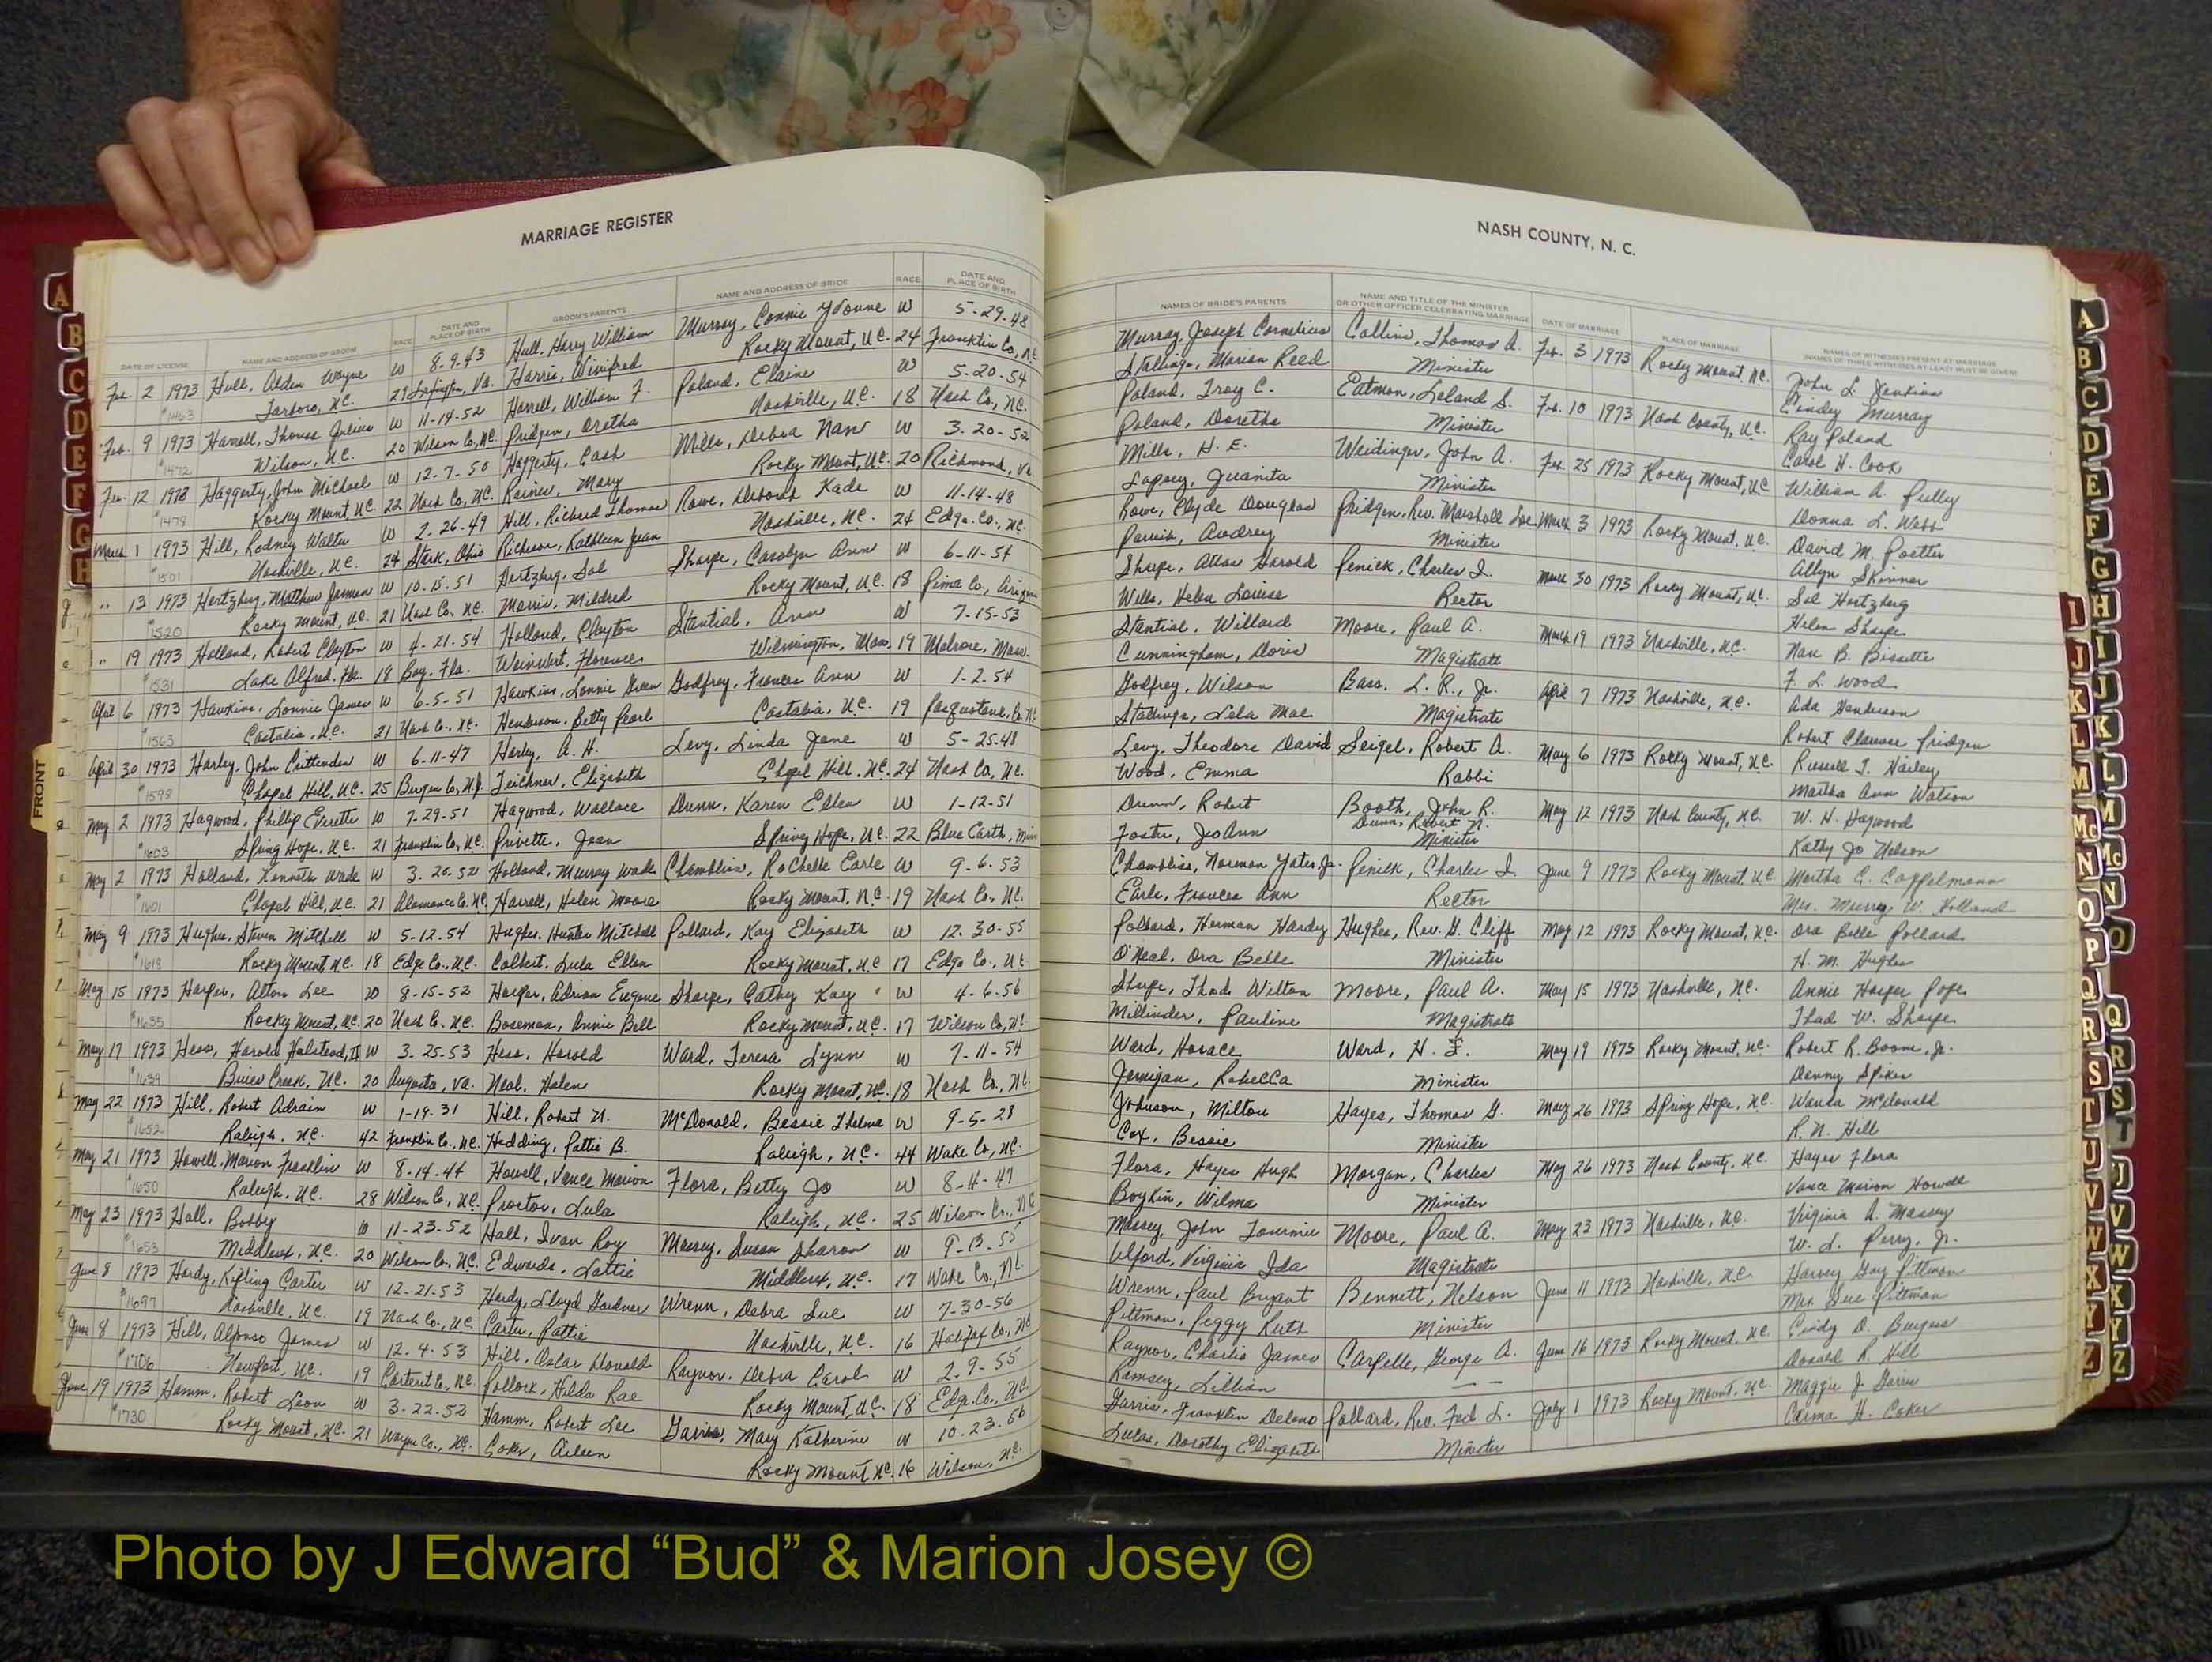 MARRIAGE REGISTER
DATE OF LICENSE NAME AND ADDRESS OF GROOM RACE DATE AND PLACE OF BIRTH GROOM'S PARENTS NAME AND ADDRESS OF BRIDE RACE DATE AND PLACE OF BIRTH
Feb. 2 1973 Hull, Alden Wayne W 8-9-43 Hull, Harry William Murray, Connie Yvonne W 5-29-48
#1463 Tarboro, N.C. 29 Arlington, Va. Harris, Winifred Rocky Mount, N.C. 24 Franklin Co, NC
Feb. 9 1973 Harrell, Thomas Julius W 11-14-52 Harrell, William F. Poland, Elaine W 5-20-54
#1472 Wilson, N.C. 20 Wilson Co, NC. Pridgen, Oretha Nashville, N.C. 18 Nash Co., NC.
Feb. 12 1973 Haggerty, John Michael W 12-7-50 Haggerty, Cash Mills, Debra Nan W 3-20-52
#1478 Rocky Mount, NC 22 Nash Co, NC. Rainer, Mary Rocky Mount, NC. 20 Richmond, Va
March 1 1973 Hill, Rodney Walter W 2-26-49 Hill, Richard Thomas Rowe, Deborah Kade W 11-14-48
#1501 Nashville, N.C. 24 Stark, Ohio Richeson, Kathleen Jean Nashville, NC. 24 Edge. Co., NC.
" 13 1973 Hertzberg, Matthew Jarman W 10-15-51 Hertzberg, Sol Sharpe, Carolyn Ann W 6-11-54
#1520 Rocky Mount, NC. 21 Nash Co. NC. Morris, Mildred Rocky Mount, N.C. 18 Pima Co.,
" 19 1973 Holland, Robert Clayton W 4-21-54 Holland, Clayton Stantial, Ann W 7-15-53
#1531 Lake Alfred, Fla. 18 Bay, Fla. Weinert, Florence Wilmington, Mass. 19 Melrose, Mass.
April 6 1973 Hawkins, Lonnie James W 6-5-51 Hawkins, Lonnie Green Godfrey, Frances Ann W 1-2-54
#1563 Castalia, N.C. 21 Nash Co., NC. Henderson, Betty Pearl Castalia, N.C. 19 Pasquotank, Co. NC
April 30 1973 Harley, John Crittenden W 6-11-47 Harley, A. H. Levy, Linda Jane W 5-25-48
#1598 Chapel Hill, NC. 25 Bergen Co., N.J. Teichner, Elizabeth Chapel Hill, NC. 24 Nash Co, NC.
May 2 1973 Hagwood, Phillip Everette W 7-29-51 Hagwood, Wallace Dunn, Karen Ellen W 1-12-51
#1603 Spring Hope, N.C. 21 Franklin Co, NC Privette, Joan Spring Hope, NC. 22 Blue Earth, Minn
May 2 1973 Holland, Kenneth Wade W 3-26-52 Holland, Murray Wade Chambliss, RoChelle Earle W 9-6-53
#1601 Chapel Hill, N.C. 21 Alamance Co. NC Harrell, Helen Moore Rocky Mount, N.C. 19 Nash Co. NC.
May 9 1973 Hughes, Steven Mitchell W 5-12-54 Hughes, Hunter Mitchell Pollard, Kay Elizabeth W 12-30-55
#1618 Rocky Mount NC. 18 Edge Co., N.C. Colbert, Lula Ellen Rocky Mount, N.C 17 Edge Co., NC
May 15 1973 Harper, Alton Lee W 8-15-52 Harper, Adrian Eugene Sharpe, Cathy Kay W 4-6-56
#1635 Rocky Mount, NC. 20 Nash Co. NC. Boseman, Annie Bell Rocky Mount, N.C. 17 Wilson Co, NC
May 17 1973 Hess, Harold Halstead, II W 3-25-53 Hess, Harold Ward, Teresa Lynn W 7-11-54
#1639 Buies Creek, N.C. 20 Augusta, Va. Neal, Helen Rocky Mount, NC. 18 Nash Co., NC
May 22 1973 Hill, Robert Adrain W 1-19-31 Hill, Robert N. McDonald, Bessie Thelma W 9-5-28
#1652 Raleigh, NC. 42 Franklin Co., NC. Hedding, Pattie B. Raleigh, N.C. 44 Wake Co., NC.
May 21 1973 Howell, Marion Franklin W 8-14-44 Howell, Vance Marion Flora, Betty Jo W 8-11-47
#1650 Raleigh, N.C. 28 Wilson Co., NC. Proctor, Lula Raleigh, N.C. 25 Wilson Co., NC
May 23 1973 Hall, Bobby W 11-23-52 Hall, Ivan Roy Massey, Susan Sharon W 9-13-55
#1653 Middlesex, N.C. 20 Wilson Co., NC. Edwards, Lottie Middlesex, N.C. 17 Wake Co., NC.
June 8 1973 Hardy, Kipling Carter W 12-21-53 Hardy, Lloyd Gardner Wrenn, Debra Sue W 7-30-56
#1697 Nashville, N.C. 19 Nash Co., NC. Carter, Pattie Nashville, N.C. 16 Halifax Co., NC
June 8 1973 Hill, Alfonso James W 12-4-53 Hill, Oscar Donald Raynor, Debra Carol W 2-9-55
#1706 Newport, N.C. 19 Carteret Co, NC. Pollock, Hilda Rae Rocky Mount, NC. 18 Edge. Co., NC.
June 19 1973 Hamm, Robert Leon W 3-22-52 Hamm, Robert Lee Garris, Mary Katherine W 10-23-56
#1730 Rocky Mount, NC. 21 Wayne Co., NC. Coker, Aileen Rocky Mount NC. 16 Wilson, NC.
NASH COUNTY, N. C.
NAMES OF BRIDE'S PARENTS NAME AND TITLE OF THE MINISTER OR OTHER OFFICER CELEBRATING MARRIAGE DATE OF MARRIAGE PLACE OF MARRIAGE NAMES OF WITNESSES PRESENT AT MARRIAGE (NAMES OF THREE WITNESSES AT LEAST MUST BE GIVEN)
Murray, Joseph Cornelius Collins, Thomas A. Feb. 3 1973 Rocky Mount, NC. John L. Jenkins
Stallings, Marian Reed Minister Cindey Murray
Poland, Troy C. Eatmon, Leland S. Feb. 10 1973 Nash County, N.C. Ray Poland
Poland, Doretha Minister Carol H. Cook
Mills, H. E. Weidinger, John A. Feb. 25 1973 Rocky Mount, NC William A. Pully
Juanita Minister Donna L. Webb
Rowe, Clyde Douglas Pridgen, Rev. Marshall Lee March 3 1973 Rocky Mount, N.C. David M. Poetter
Parrish, Audrey Minister Allyn Skinner
Sharpe, Harold Penick, Charles I. March 30 1973 Rocky Mount, NC. Sol Hertzberg
Wells, Helen Louise Rector Helen Sharpe
Stantial, Willard Moore, Paul A. March 19 1973 Nashville, N.C. Nan B. Bissette
Cunningham, Doris Magistrate F. L. Wood
Godfrey, Wilson Bass, L. R., Jr. April 7 1973 Nashville, N.C. Ada Henderson
Stallings, Lela Mae Magistrate Robert Clarence Pridgen
Levy, Theodore David Seigel, Robert A. May 6 1973 Rocky Mount, N.C. Russell T. Hailey
Wood, Emma Rabbi Martha Ann Watson
Dunn, Robert Booth, John R. May 12 1973 Nash County, N.C. W. H. Hagwood
Dunn, Robert N.
Foster, JoAnn Minister Kathy Jo Nelson
Chambliss, Norman Yates, Jr. Penick, Charles I. June 9 1973 Rocky Mount, N.C. Martha C. Coppelmann
Earle, Frances Ann Rector Mrs. Murray W. Holland
Pollard, Herman Hardy Hughes, Rev. G. Cliff May 12 1973 Rocky Mount, N.C. Ora Belle Pollard
O'Neal, Ora Belle Minister H. M. Hughes
Sharpe, Thad Wilton Moore, Paul A. May 15 1973 Nashville, N.C. Annie Harper Pope
Millinder, Pauline Magistrate Thad W. Sharpe
Ward, Horace Ward, H. F. May 19 1973 Rocky Mount, N.C. Robert R. Boone, Jr.
Jernigan, Rebecca Minister Denny Spikes
Johnson, Milton Hayes, Thomas G. May 26 1973 Spring Hope, N.C. Wanda McDonald
Cox, Bessie Minister R. N. Hill
Flora, Hayes Hugh Morgan, Charles May 26 1973 Nash County, N.C. Hayes Flora
Boykin, Wilma Minister Vance Marion Howell
Massey, John Moore, Paul A. May 23 1973 Nashville, N.C. Virginia A. Massey
Ulford, Virginia Ida Magistrate W. L. Perry, Jr.
Wrenn, Paul Bryant Bennett, Nelson June 11 1973 Nashville, N.C. Harvey Gay Pittman
Pittman, Peggy Ruth Minister Mrs. Sue Pittman
Raynor, Charlie James Carpelle, George A. June 16 1973 Rocky Mount, N.C. Cindy D. Burgess
Ramsey, Lillian -- Donald R. Hill
Garris, Franklin Delano Pollard, Rev. Fed L. July 1 1973 Rocky Mount, N.C. Maggie J. Garris
Lucas, Dorothy Elizabeth Minister H. Coker
FRONT
A
B
C
D
E
F
G
H
I
J
K
L
M
Mc
N
O
P
Q
R
S
T
U
V
W
X
Y
Z
A
B
C
D
E
F
G
H
I
J
K
L
M
Mc
N
O
Q
R
S
T
J
V
W
X
Y
Z
Photo by J Edward “Bud” & Marion Josey ©